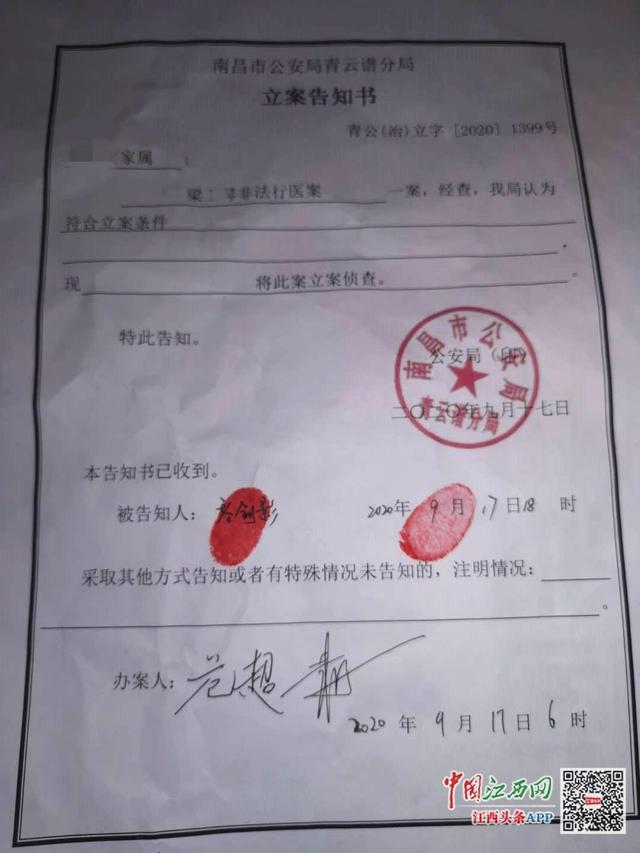 南昌市公安局青云谱分局
立案告知书
青公(治)立字〔2020〕1399号
家属：
梁 非法行医案 一案，经查，我局认为
符合立案条件
。
现 将此案立案侦查。 。
特此告知。
南昌市公安局
青云谱分局
公安局（印）
二〇二〇年九月十七日
本告知书已收到。
被告知人： 2020年9月17日18时
采取其他方式告知或者有特殊情况未告知的，注明情况：
。
办案人：
2020年9月17日6时
中国江西网
江西头条APP